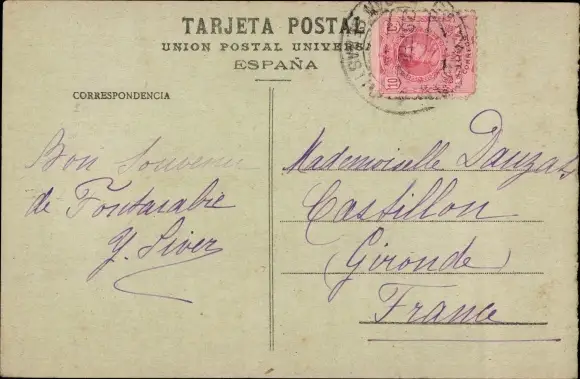 TARJETA POSTAL
UNION POSTAL UNIVERSA
ESPAÑA
CORRESPONDENCIA
Bon Souvenir
de Fontarabie
Y. Siver
Mademoiselle Danzats
Castillon
Gironde
France
10